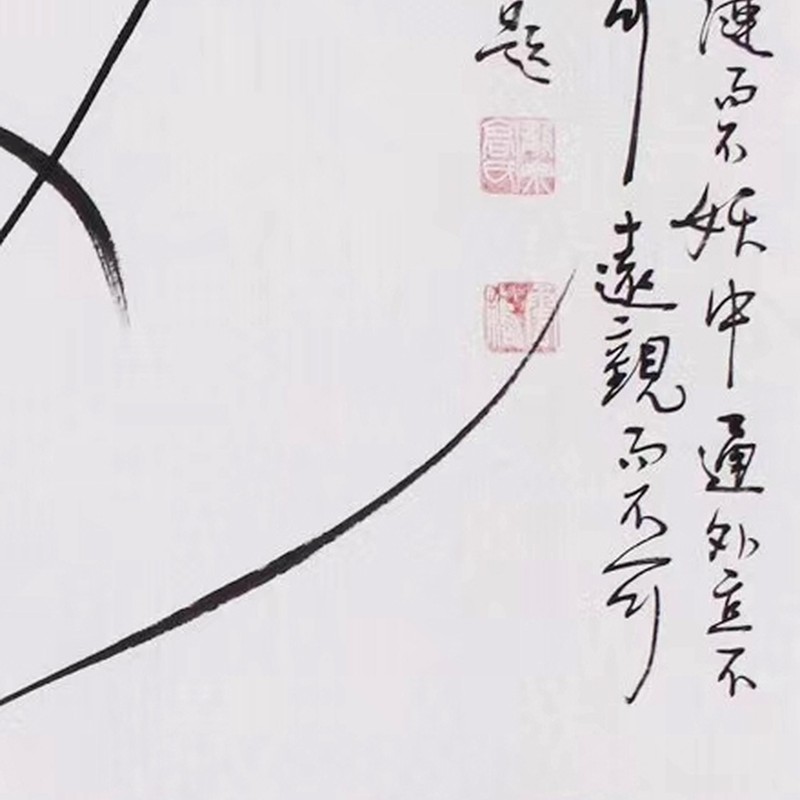 漣而不妖中通外直不
可遠觀而不可
題